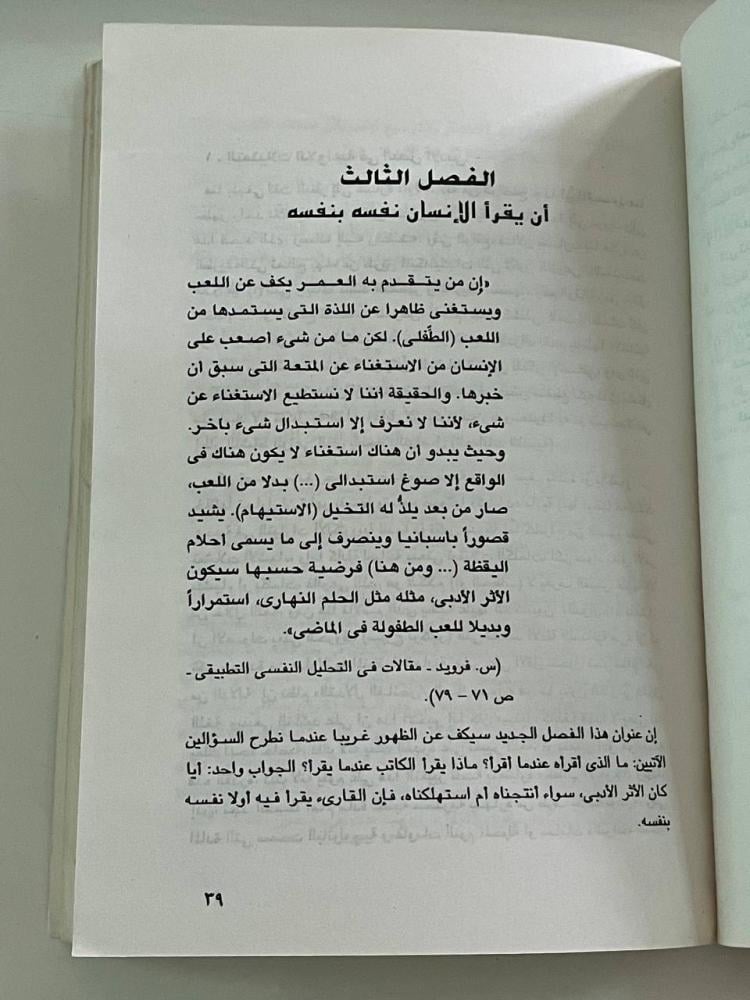 الفصل الثالث
أن يقرأ الإنسان نفسه بنفسه
«إن من يتقدم به العمر يكف عن اللعب
ويستغنى ظاهرا عن اللذة التى يستمدها من
اللعب (الطِّفلى). لكن ما من شىء أصعب على
الإنسان من الاستغناء عن المتعة التى سبق أن
خبرها. والحقيقة أننا لا نستطيع الاستغناء عن
شىء، لأننا لا نعرف إلا استبدال شىء بآخر.
وحيث يبدو أن هناك استغناء لا يكون هناك فى
الواقع إلا صوغ استبدالى (...) بدلا من اللعب،
صار من بعد يلذُّ له التخيل (الاستيهام). يشيد
قصوراً بأسبانيا وينصرف إلى ما يسمى أحلام
اليقظة (... ومن هنا) فرضية حسبها سيكون
الأثر الأدبى، مثله مثل الحلم النهارى، استمراراً
وبديلا للعب الطفولة فى الماضى».
(س. فرويد ـ مقالات فى التحليل النفسى التطبيقى ـ
ص ٧١ – ٧٩).
إن عنوان هذا الفصل الجديد سيكف عن الظهور غريبا عندما نطرح السؤالين
الآتيين: ما الذى أقرأه عندما أقرأ؟ ماذا يقرأ الكاتب عندما يقرأ؟ الجواب واحد: أيا
كان الأثر الأدبى، سواء أنتجناه أم استهلكناه، فإن القارىء يقرأ فيه أولا نفسه
بنفسه.
٣٩